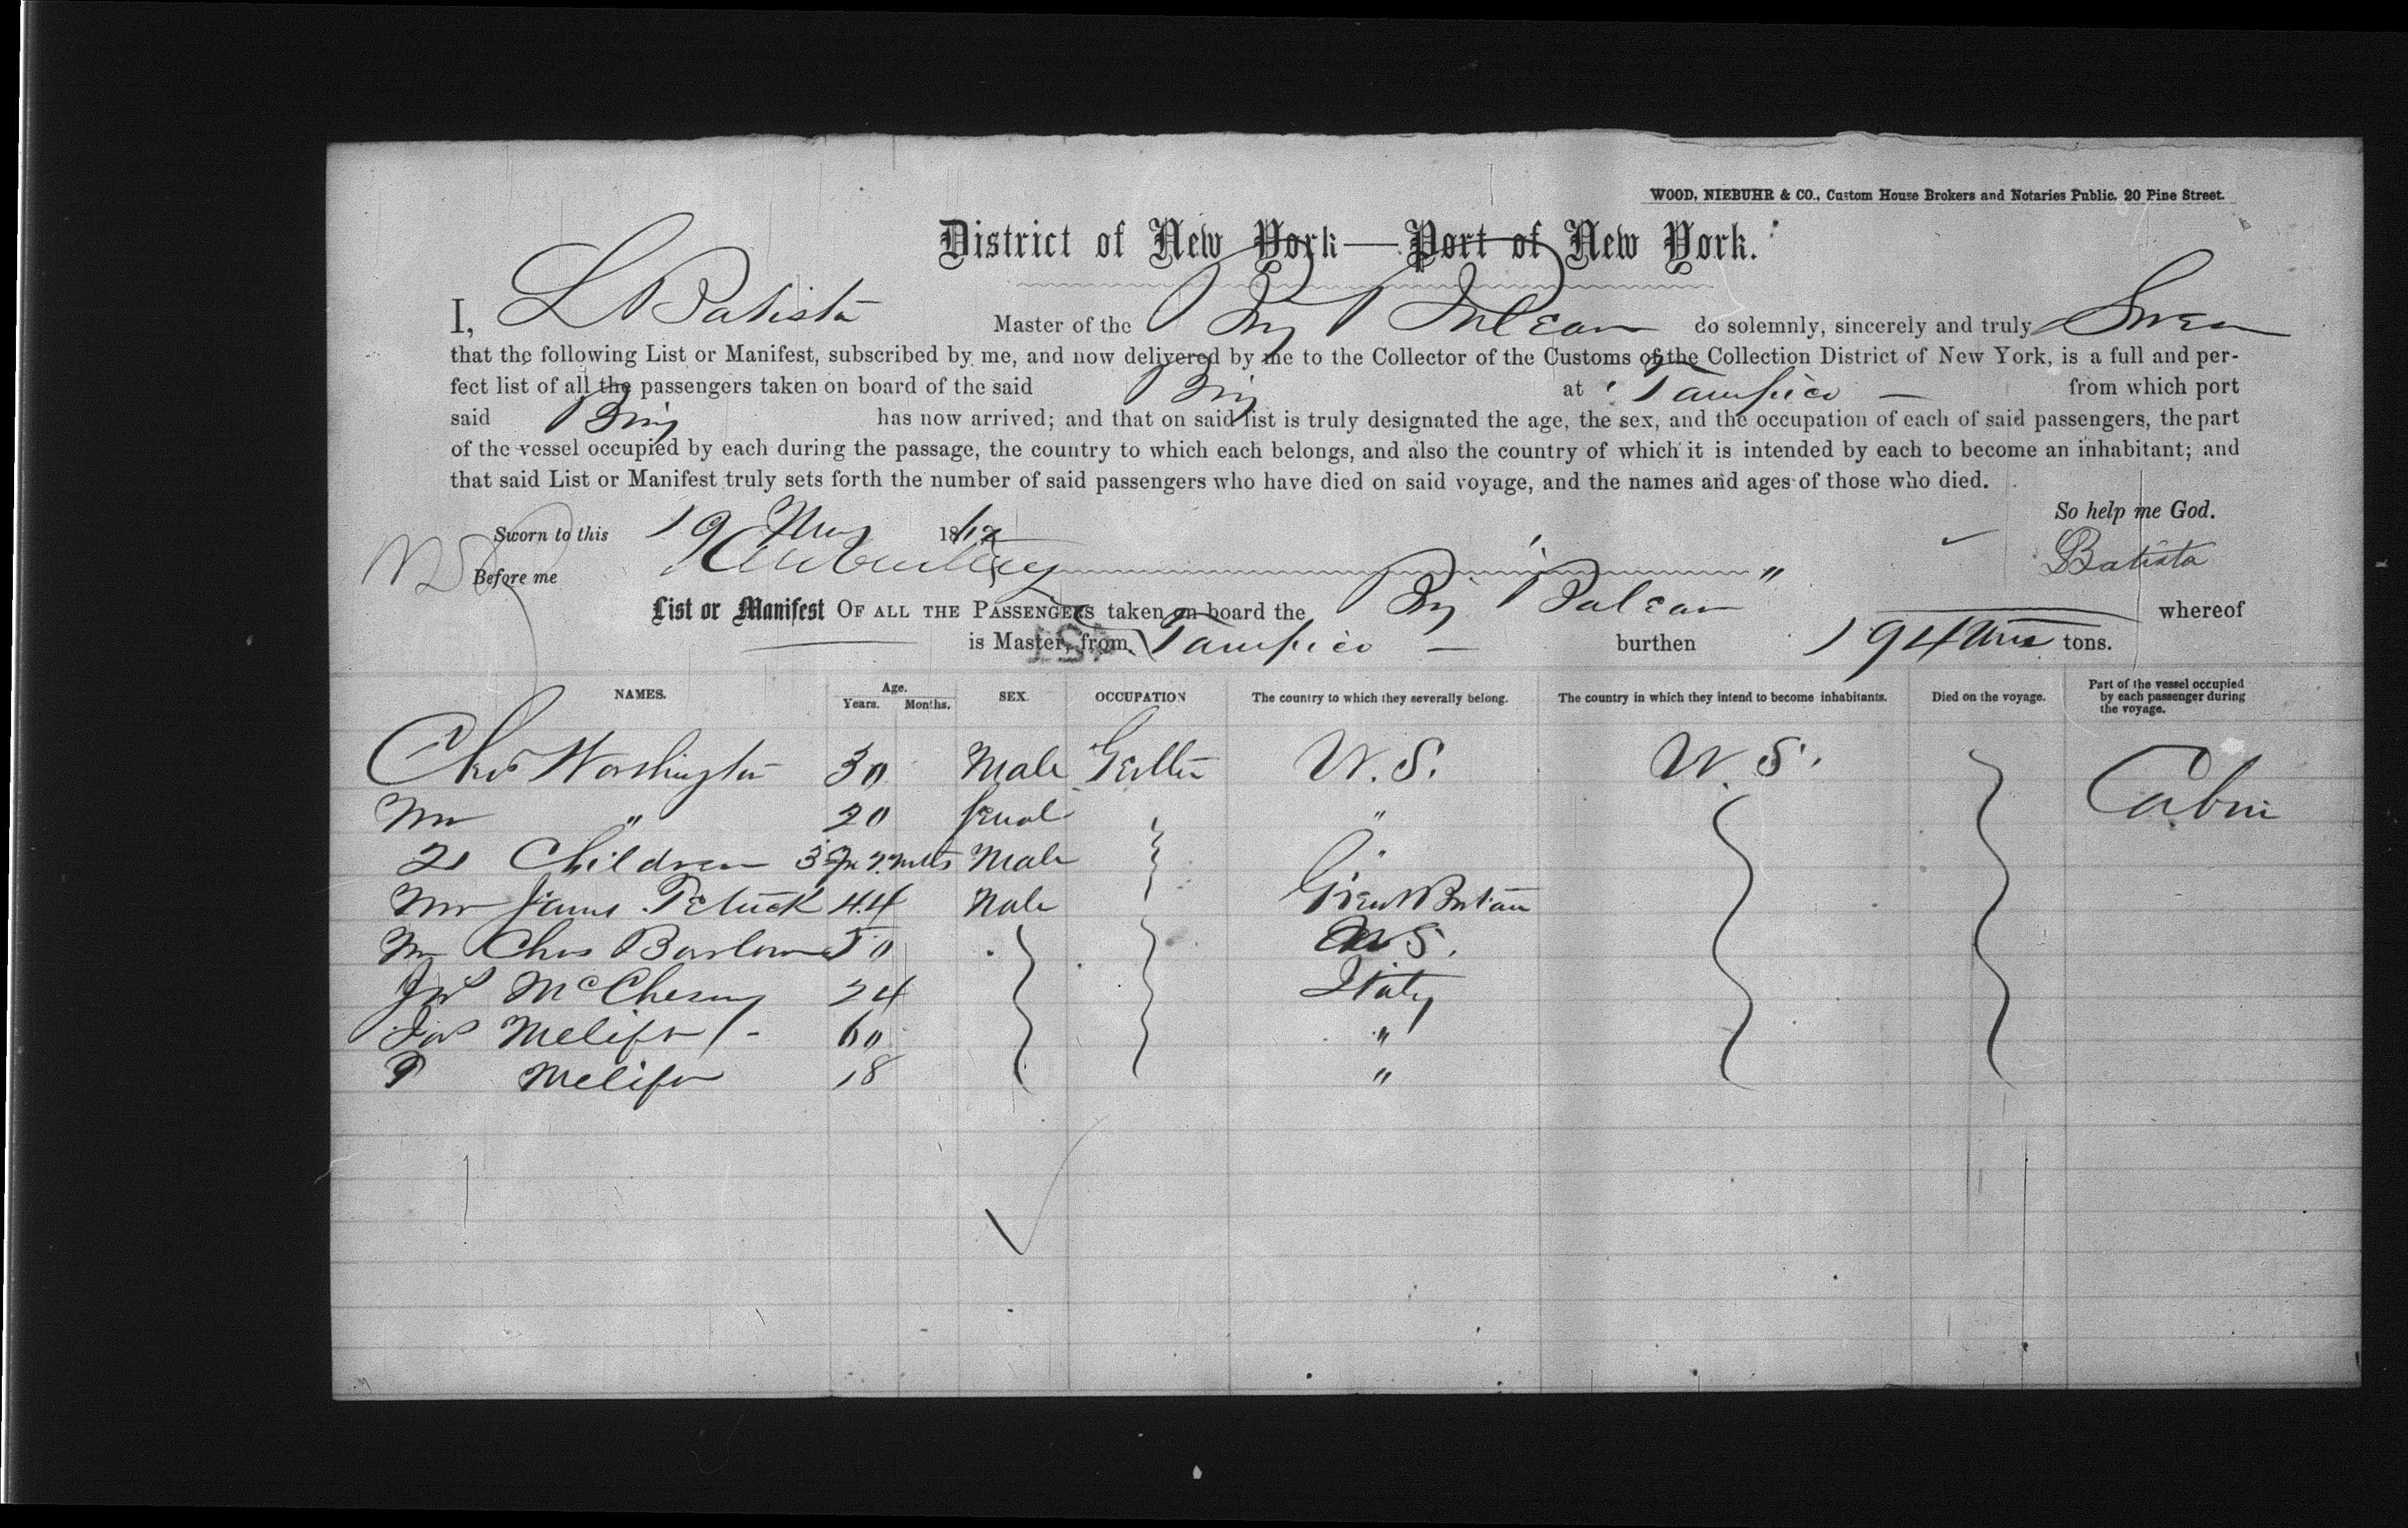 WOOD, NIEBUHR & CO., Custom House Brokers and Notaries Public, 20 Pine Street.
District of New York—Port of New York.
I, L Batista Master of the Brig do solemnly, sincerely and truly Swear
that the following List or Manifest, subscribed by me, and now delivered by me to the Collector of the Customs of the Collection District of New York, is a full and per-
fect list of all the passengers taken on board of the said Brig at Tampico from which port
said Brig has now arrived; and that on said list is truly designated the age, the sex, and the occupation of each of said passengers, the part
of the vessel occupied by each during the passage, the country to which each belongs, and also the country of which it is intended by each to become an inhabitant; and
that said List or Manifest truly sets forth the number of said passengers who have died on said voyage, and the names and ages of those who died.
So help me God.
Sworn to this 19 1862
Batista
Before me
List or Manifest OF ALL THE PASSENGERS taken on board the Brig whereof
is Master, from Tampico burthen 194 tons.
NAMES. Age. Years. Months. SEX. OCCUPATION The country to which they severally belong. The country in which they intend to become inhabitants. Died on the voyage. Part of the vessel occupied by each passenger during the voyage.
Chs Washington 30 Male U.S. U.S. Cabin
" 20 "
2 Children Male "
Mr James 44 Male Great Britain
Mr Chas Barlow 50 U S.
Jas McChesny 24 Italy
Melifor 60 "
P Melifor 18 "